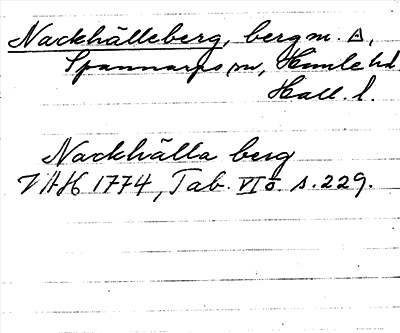 Nackhälleberg, berg m. △,
Spannarps sn, Himle hd
Hall. l.
Nackhälla berg
VAH 1774, Tab. VI ō s. 229.